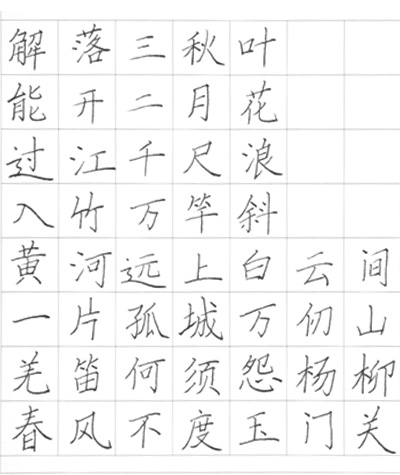 解落三秋叶
能开二月花
过江千尺浪
入竹万竿斜
黄河远上白云间
一片孤城万仞山
羌笛何须怨杨柳
春风不度玉门关